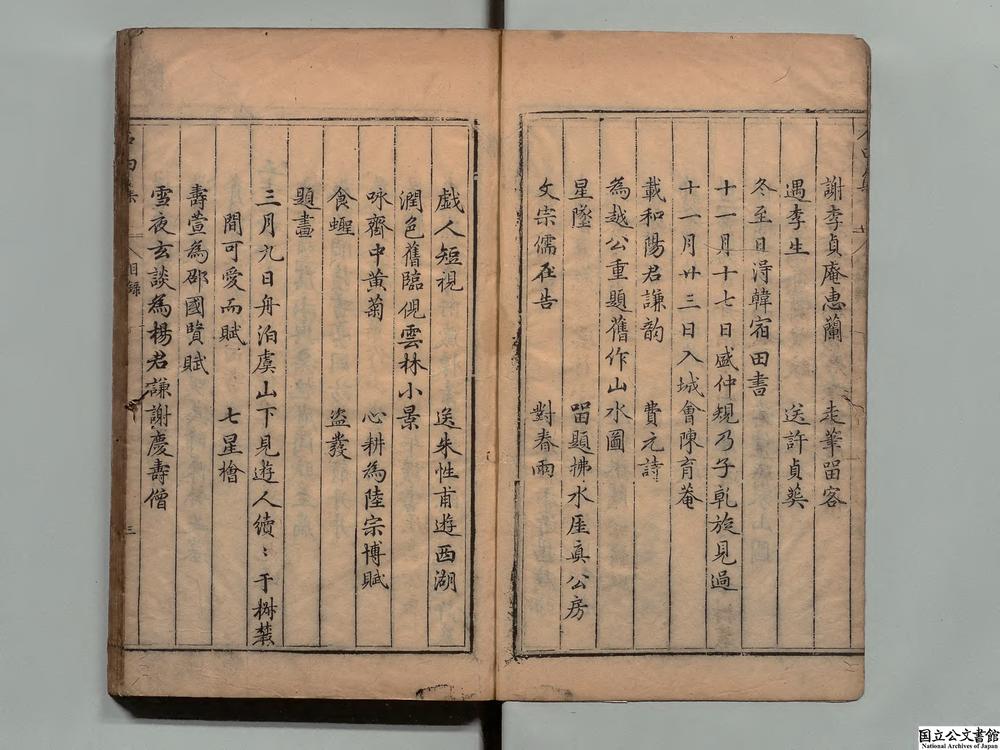 謝李貞庵惠蘭 走筆留客
遇李生 送許貞英
冬至日淂韓宿田書
十一月十七日盛仲規乃子乹旋見過
十一月廿三日入城會陳育菴
載和陽君謙韵 費元詩
為越公重題舊作山水圖
星墜 留題拂水厓真公房
文宗儒在告 對春雨
戲人短視 送朱性甫遊西湖
潤色舊臨倪雲林小景
咏齋中黄菊 心耕為陸宗博賦
食蟶 盜發
題畫
三月九日舟泊虞山下見遊人續〻于樹叢
間可愛而賦 七星檜
壽萱為邵國賢賦
雪夜玄談為楊君謙謝慶壽僧
目録
三
国立公文書館
National Archives of Japan